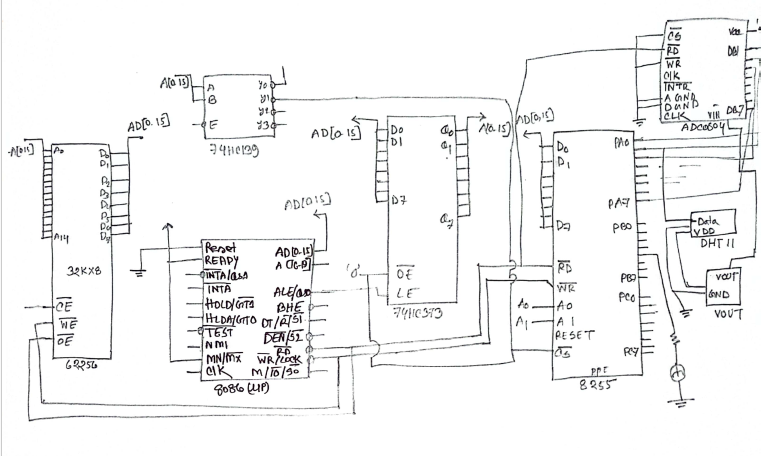 A[0.15]
A
B
E
Y0
Y1
Y2
Y3
74HC139
A[0.15]
AD[0.15]
A0
A14
D0
D1
D2
D3
D4
D5
D6
D7
32KX8
CE
WE
OE
62256
AD[0.15]
Reset
READY
INTA
HOLD/GT0
HLDA/GT0
TEST
NMI
MN/MX
CLK
AD[0.15]
BHE
DT/R/S1
DEN/S2
RD
WR/LOCK
M/IO/S0
8086 (UP)
AD[0.15]
A[0.15]
D0
D1
D7
Q0
Q1
Q7
'0'
OE
LE
74HC373
AD[0.15]
D0
D1
D7
RD
WR
A0
A0
A1
A1
RESET
CS
PA0
PA7
PB0
PB7
PC0
PC7
PPI
8255
CS
RD
WR
CLK
INTR
A GND
D GND
CLK
DB7
VIN
ADC0804
Data
VDD
DHT 11
VOUT
GND
VOUT